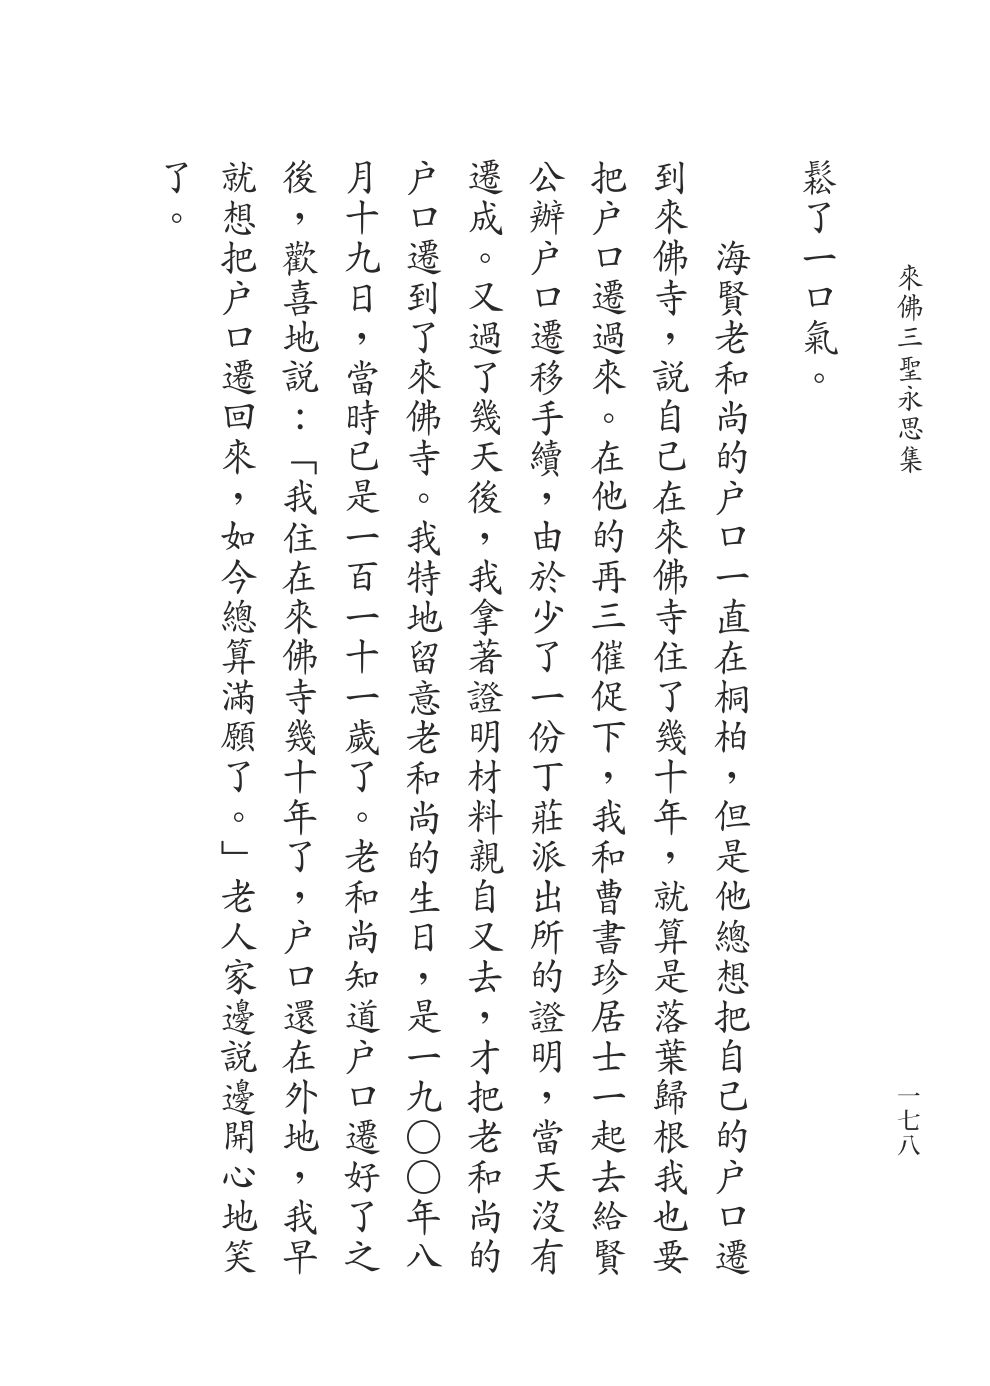 來佛三聖永思集
一七八
鬆了一口氣。
海賢老和尚的户口一直在桐柏，但是他總想把自己的户口遷
到來佛寺，説自己在來佛寺住了幾十年，就算是落葉歸根我也要
把户口遷過來。在他的再三催促下，我和曹書珍居士一起去給賢
公辦户口遷移手續，由於少了一份丁莊派出所的證明，當天沒有
遷成。又過了幾天後，我拿著證明材料親自又去，才把老和尚的
户口遷到了來佛寺。我特地留意老和尚的生日，是一九〇〇年八
月十九日，當時已是一百一十一歲了。老和尚知道户口遷好了之
後，歡喜地説：「我住在來佛寺幾十年了，户口還在外地，我早
就想把户口遷回來，如今總算滿願了。」老人家邊説邊開心地笑
了。